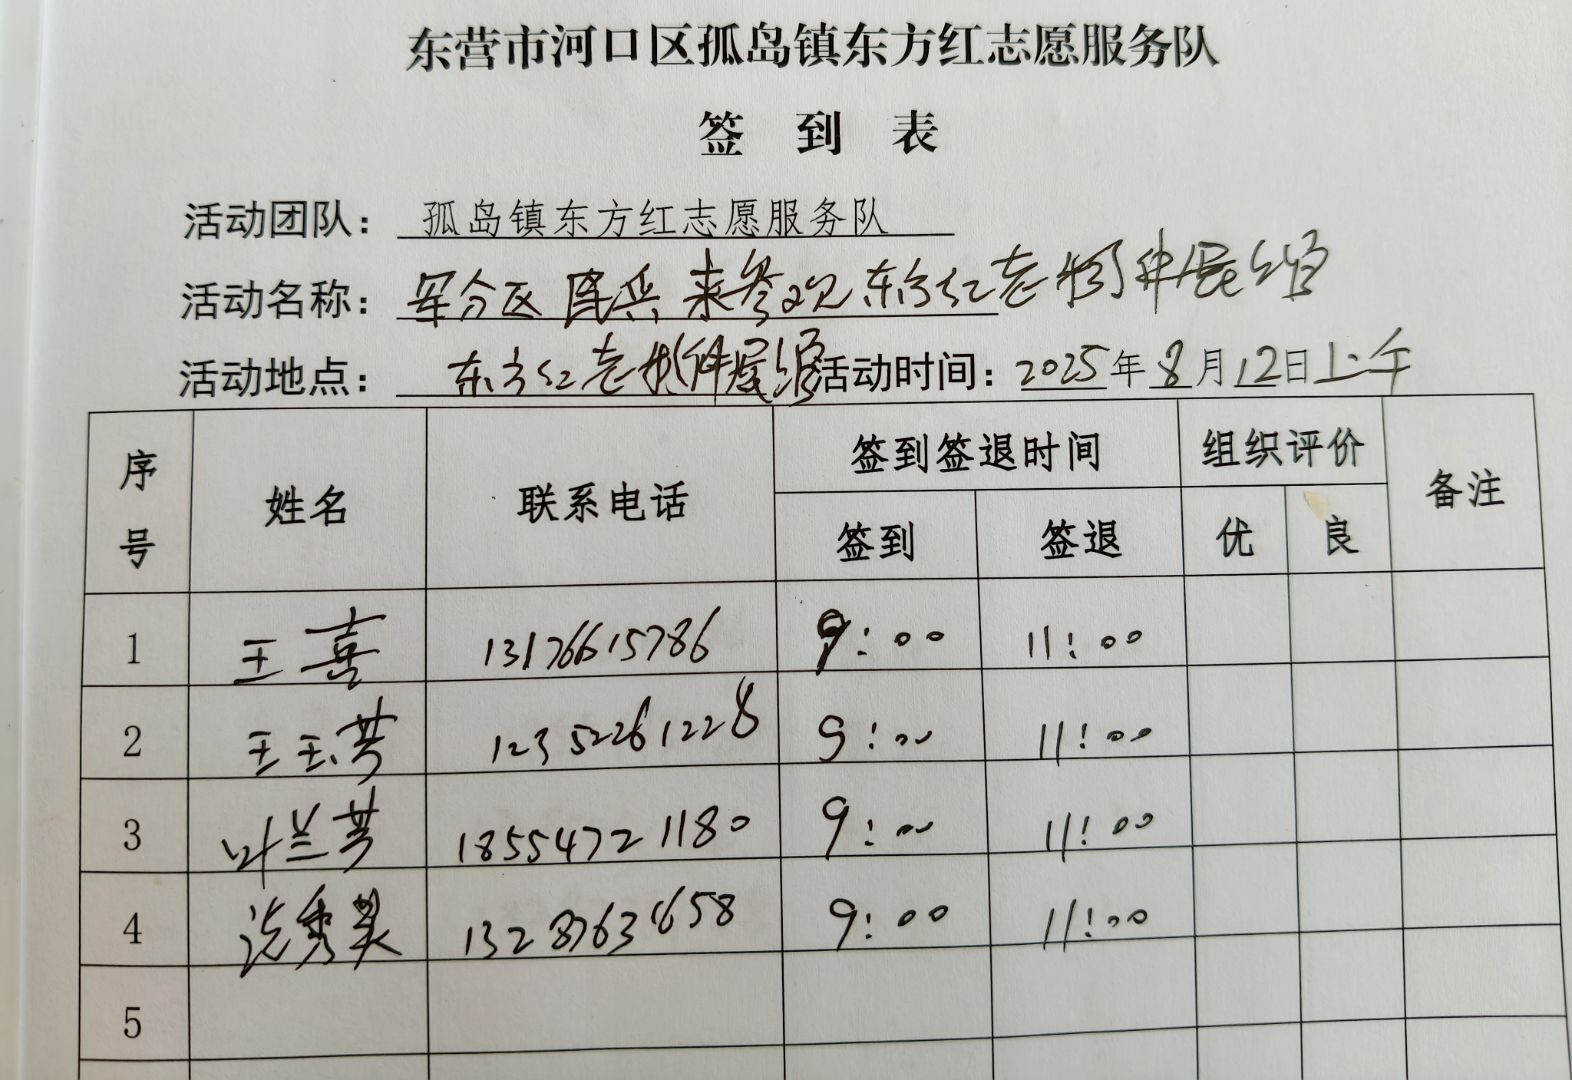 东营市河口区孤岛镇东方红志愿服务队
签 到 表
活动团队：孤岛镇东方红志愿服务队
活动名称：军分区民兵来参观东方红老物件展馆
活动地点：东方红老物件展馆 活动时间：2025年8月12日上午
序号 姓名 联系电话 签到签退时间 组织评价 备注
签到 签退 优 良
1 王喜 13176615786 9:00 11:00
2 王玉芳 12352261228 9:00 11:00
3 叶兰芳 18554721180 9:00 11:00
4 秀美 9:00 11:00
5